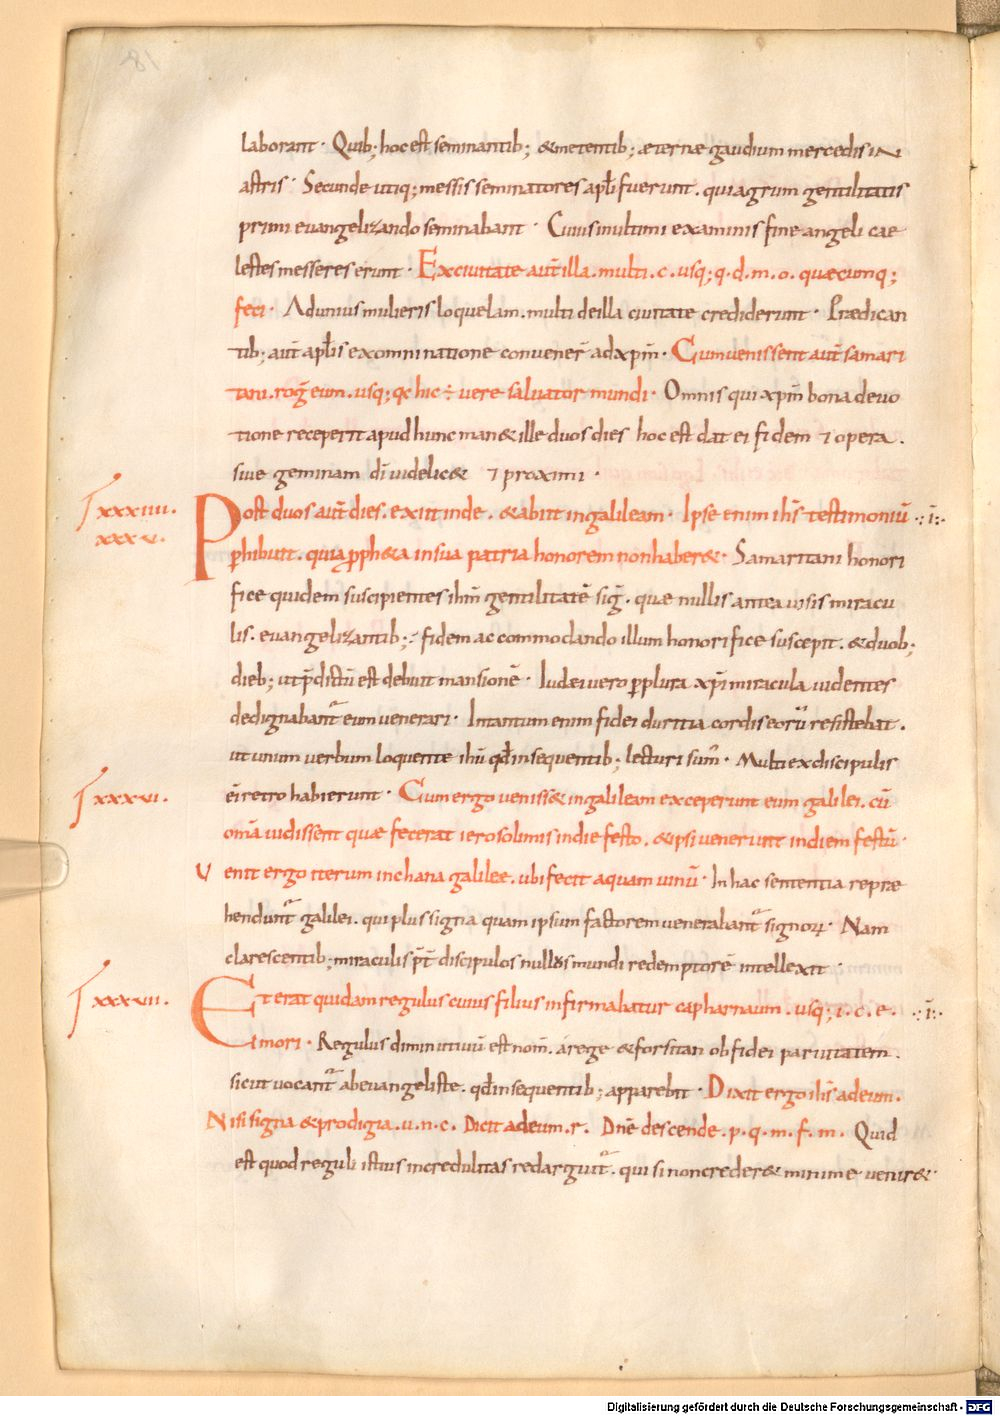 laborant · Quib; hoc est seminantib; & metentib; æternæ gaudium mercedis in
astris · Secunde utiq; messis seminatores apłi fuerunt . qui agrum gentilitatis
primi evangelizando seminabant · Cuius multimi examinis fine angeli cae
lestes messeres erunt · Ex civitate aut̄ illa . multi . c . usq; q . d . m . o . quæcumq;
feci · Ad unius mulieris loquelam . multi de illa civitate crediderunt · Prædican
tib; aut̄ apłis ex omni natione convener̄ ad xp̄m · Cum venissent aut̄ samari
tani . roḡ eum . usq; q̄ hic ÷ vere salvator mundi · Omnis qui xp̄m bona devo
tione receperit apud hunc man& ille duos dies hoc est dat ei fidem ⁊ opera .
sive geminam dī videlic& ⁊ proximi ·
xxxiiii .
xxxv .
Post duos aut̄ dies . exiit inde . & abiit in galileam · Ipse enim ih̄s testimoniū ·:ī:·
phibuit . quia pph&a in sua patria honorem non haber& · Samaritani honori
fice quidem suscipientes ihm̄ gentilitatē sig̅ . quæ nullis antea visis miracu
lis . evangelizantib; fidem accommodando illum honorifice suscepit . & duob;
dieb; ut p̄dictū est debuit mansionē · Iudæi vero p plura xp̄i miracula videntes
dedignabant̃ eum venerari · In tantum enim fidei duritia cordis eorū resistebat .
ut unum verbum loquente ihū q̄d in sequentib; lecturi sum̄ · Multi ex discipulis
xxxvi .
ei retro habierunt · Cum ergo veniss& in galileam exceperunt eum galilei . cū
om̄a vidissent quæ fecerat ierosolimis in die festo . & ipsi venerunt in diem festū ·
Venit ergo iterum in chana galileæ . ubi fecit aquam vinū · In hac sententia repræ
hendunt̃ galilei . qui plus signa quam ipsum factorem venerabant̃ signoꝝ · Nam
clarescentib; miraculis p̄t̄ discipulos nullus mundi redemptorē intellexit ·
xxxvii .
Et erat quidam regulus cuius filius infirmabatur capharnaum . usq; i . c . e . ·:ī:·
mori · Regulus diminutivū est nom̄ . a rege & forsitan ob fidei parvitatem .
sicut vocant̃ ab evangeliste . q̄d in sequentib; apparebit · Dixit ergo ih̄s ad eum .
Nisi signa & prodigia . v . n . c . Dicit ad eum . r . Dn̄e descende . p . q . m . f . m . Quid
est quod reguli istius incredulitas redarguit̃ . qui si non creder& minime venir& ·
Digitalisierung gefördert durch die Deutsche Forschungsgemeinschaft - DFG